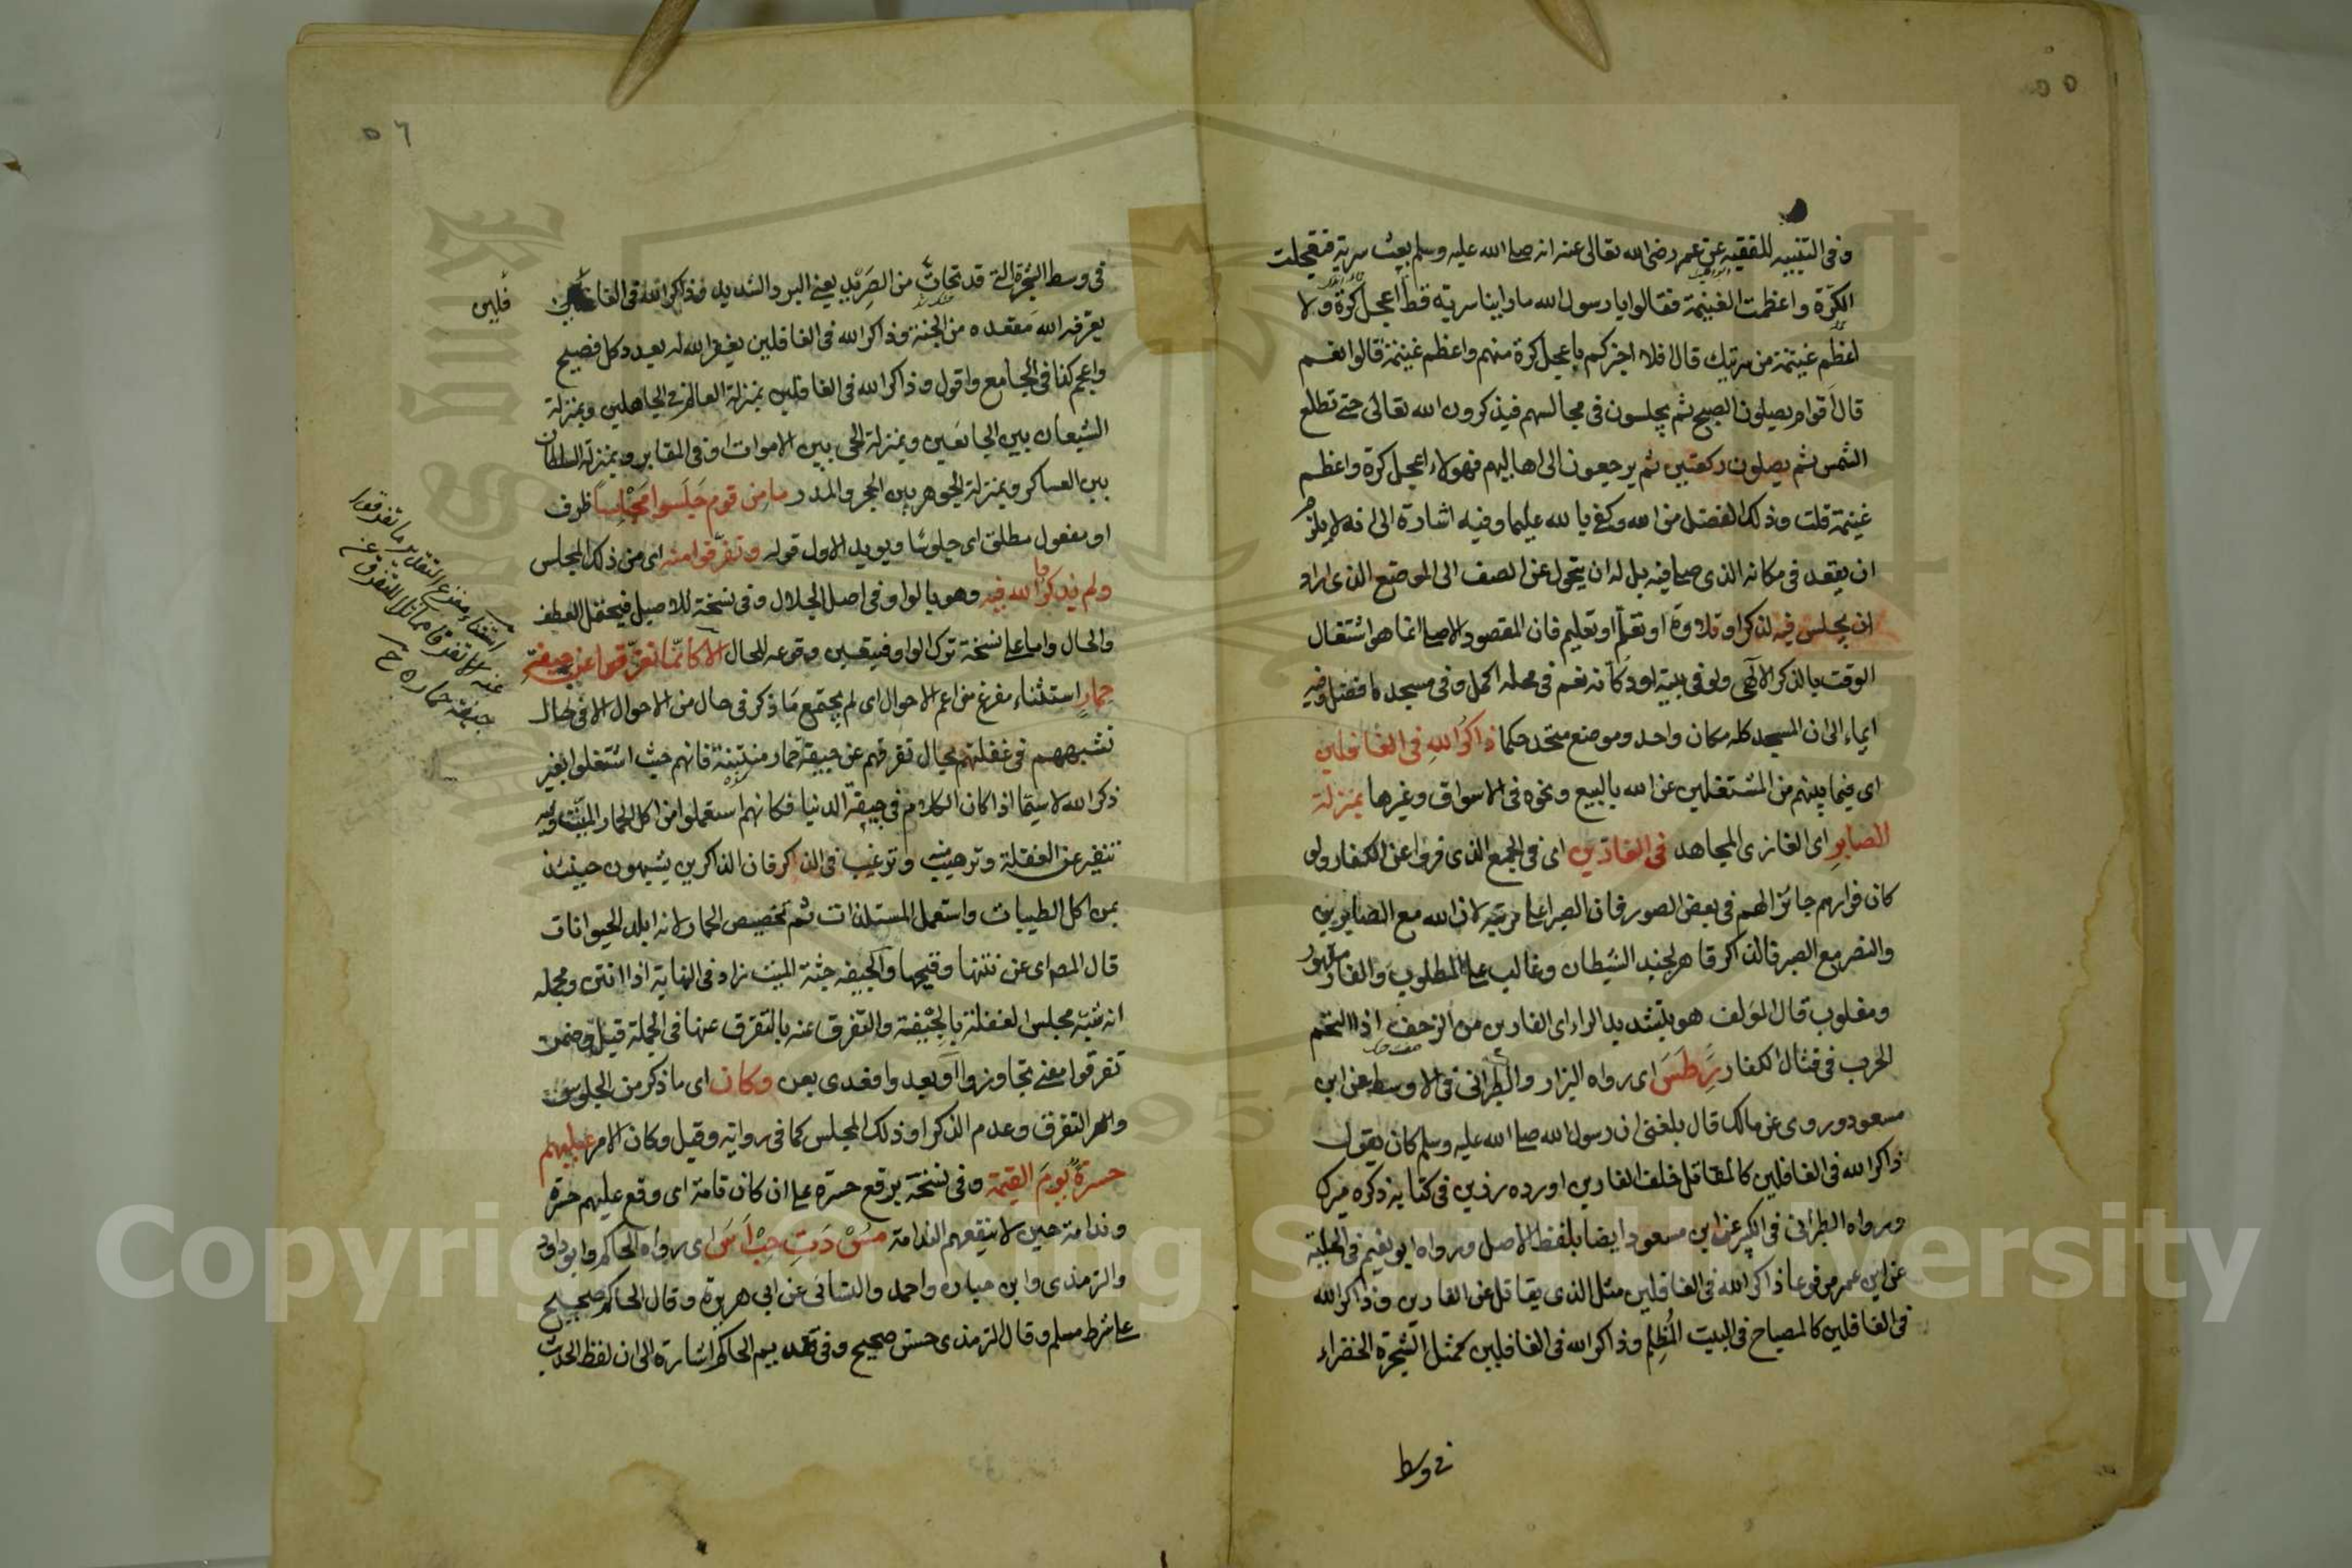 ٥٥
وفى التنبيه للفقيه عن عمر رضى الله تعالى عنه انه صلى الله عليه وسلم بعث سرية فتعجلت
الكرّة واعظمت الغنيمة فقالوا يا رسول الله ما راينا سرية قط اعجل كرة ولا
اعظم غنيمة من سريتك قال افلا اخبركم باعجل كرة منهم واعظم غنيمة قالوا نعم
قال اقوام يصلون الصبح ثم يجلسون فى مجالسهم فيذكرون الله تعالى حتى تطلع
الشمس ثم يصلون ركعتين ثم يرجعون الى اهاليهم فهولاء اعجل كرة واعظم
غنيمة قلت وذلك الفضل من الله وكفى بالله عليما وفيه اشارة الى انه لا يلزم
ان يقعد فى مكانه الذى صلى فيه بل له ان يتحول عن الصف الى الموضع الذى اراد
ان يجلس فيه لذكر او تلاوة او تعلم او تعليم فان المقصود الاصلى انما هو اشتغال
الوقت بالذكر الالهى ولو فى بيته او دكانه نعم فى محله اكمل وفى مسجده افضل وفيه
ايماء الى ان المسجد كله مكان واحد وموضع متحد حكما ذاكر الله فى الغافلين
اى فيما بينهم من المشتغلين عن الله بالبيع ونحوه فى الاسواق وغيرها بمنزلة
الصابر اى الغازى المجاهد فى الفارّين اى فى الجمع الذى فروا عن الكفار ولو
كان فرارهم جائزا لهم فى بعض الصور فان الصبر اعلى مرتبة لان الله مع الصابرين
والنصر مع الصبر فالذاكر قاهر لجند الشيطان وغالب على المطلوب والفار مقهور
ومغلوب قال المؤلف هو بتشديد الراء اى الفارين من الزحف اذا التحم
الحرب فى قتال الكفار ر طس اى رواه البزار والطبرانى فى الاوسط عن ابن
مسعود وروى عن مالك قال بلغنى ان رسول الله صلى الله عليه وسلم كان يقول
ذاكر الله فى الغافلين كالمقاتل خلف الفارين اورده رزين فى كتابه ذكره ميرك
ورواه الطبرانى فى الكبير عن ابن مسعود ايضا بلفظ الاصل ورواه ابو نعيم فى الحلية
عن ابن عمر مرفوعا ذاكر الله فى الغافلين مثل الذى يقاتل عن الفارين وذاكر الله
فى الغافلين كالمصباح فى البيت المظلم وذاكر الله فى الغافلين كمثل الشجرة الخضراء
فى وسط
٥٦
فى وسط الشجرة التى قد تحاتّ من الصريد يعنى البرد الشديد وذاكر الله فى الغافلين
فلين
يعرفه الله مقعده من الجنة وذاكر الله فى الغافلين يغفر الله له بعدد كل فصيح
واعجم كذا فى الجامع واقول وذاكر الله فى الغافلين بمنزلة العالم فى الجاهلين وبمنزلة
الشبعان بين الجائعين وبمنزلة الحى بين الاموات او فى المقابر وبمنزلة السلطان
بين العساكر وبمنزلة الجوهر بين الحجر والمدر ما من قوم جلسوا مجلسا ظرف
او مفعول مطلق اى جلوسا ويويد الاول قوله وتفرقوا منه اى من ذلك المجلس
ولم يذكروا الله فيه وهو بالواو فى اصل الجلال وفى نسخة للاصيل فيحتمل العطف
والحال واما على نسخة ترك الواو فيتعين وقوعه للحال الا كانما تفرقوا عن جيفة
حمار استثناء مفرغ من اعم الاحوال اى لم يجتمع ما ذكر فى حال من الاحوال الا فى حال
تشبههم فى غفلتهم بحال تفرقهم عن جيفة حمار منتنة فانهم حيث اشتغلوا بغير
ذكر الله لا سيما اذا كان الكلام فى جيفة الدنيا فكانهم استعملوا من اكل الحمار الميت وفيه
تنفير عن الغفلة وترهيب وترغيب فى الذاكر فان الذاكرين يشبهون حينئذ
بمن اكل الطيبات واستعمل المستلذات ثم تخصيص الحمار لانه ابلد الحيوانات
قال المصـ اى عن نتنها وقبحها والجيفة جثة الميت زاد فى النهاية اذا انتن ومجمله
انه شبه مجلس الغفلة بالجيفة والتفرق عنه بالتفرق عنها فى الجملة قيل وضمن
تفرقوا معنى تجاوزوا او بعدوا فعدى بعن وكان اى ما ذكر من الجلوس
والتفرق وعدم الذكر او ذلك المجلس كما فى رواية وقيل وكان الامر عليهم
حسرة يوم القيمة وفى نسخة برفع حسرة على ان كان تامة اى وقع عليهم حسرة
وندامة حين لا تنفعهم الندامة مس د ت حب ا س اى رواه الحاكم وابو داود
والترمذى وابن حبان واحمد والنسائى عن ابى هريرة وقال الحاكم صحيح
على شرط مسلم وقال الترمذى حسن صحيح وفى تقديم الحاكم اشارة الى ان لفظ الحديث
استثناء مفرغ التقدير ما تفرقوا
عنه الا تفرقا مماثلا للتفرق عن
جيفة حمار ه ح
Copyright © King Saud University
King Saud
University
1957